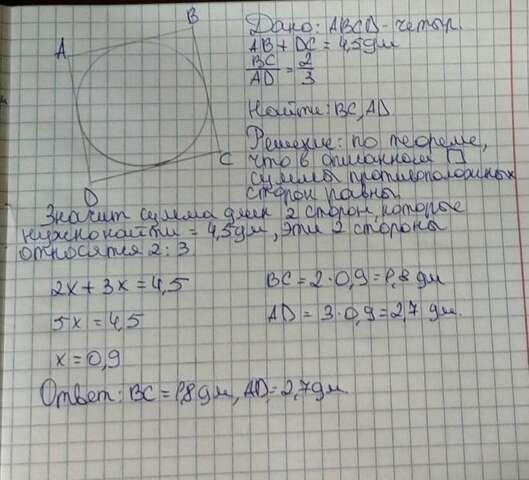 A
B
C
D
Дано: ABCD - четыр.
AB + DC = 4,5 дм
BC/AD = 2/3
Найти: BC, AD
Решение: по теореме,
что в описанном □
суммы противоположных
сторон равны
Значит сумма длин 2 сторон, которые
нужно найти = 4,5 дм, эти 2 стороны
относятся 2:3
2x + 3x = 4,5
BC = 2 · 0,9 = 1,8 дм
5x = 4,5
AD = 3 · 0,9 = 2,7 дм.
x = 0,9
Ответ: BC = 1,8 дм, AD = 2,7 дм